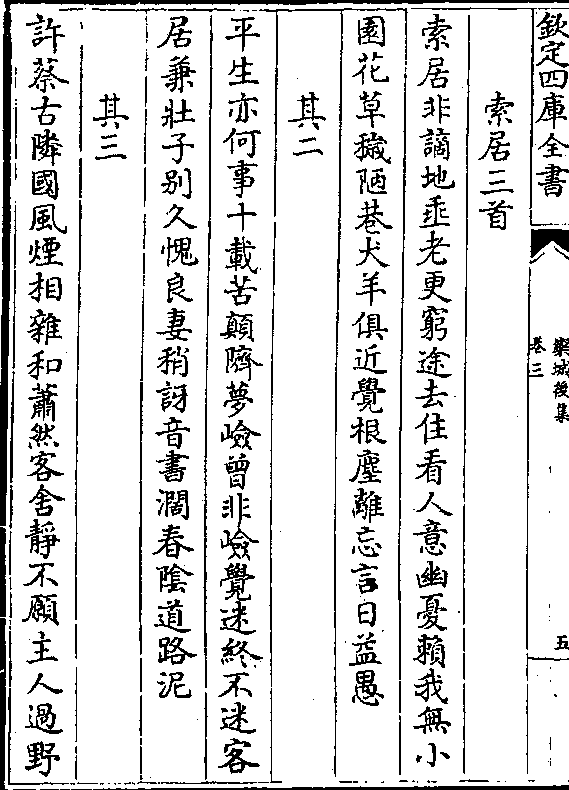 欽定四庫全書
欒城後集
卷三
五
索居三首
索居非謫地垂老更窮途去住看人意幽憂賴我無小
園花草穢陋巷犬羊俱近覺根塵離忘言日益愚
其二
平生亦何事十載苦顛隮夢嶮曾非嶮覺迷終不迷客
居兼壯子别久愧良妻稍訝音書濶春隂道路泥
其三
許蔡古隣國風煙相雜和蕭然客舍靜不願主人過野